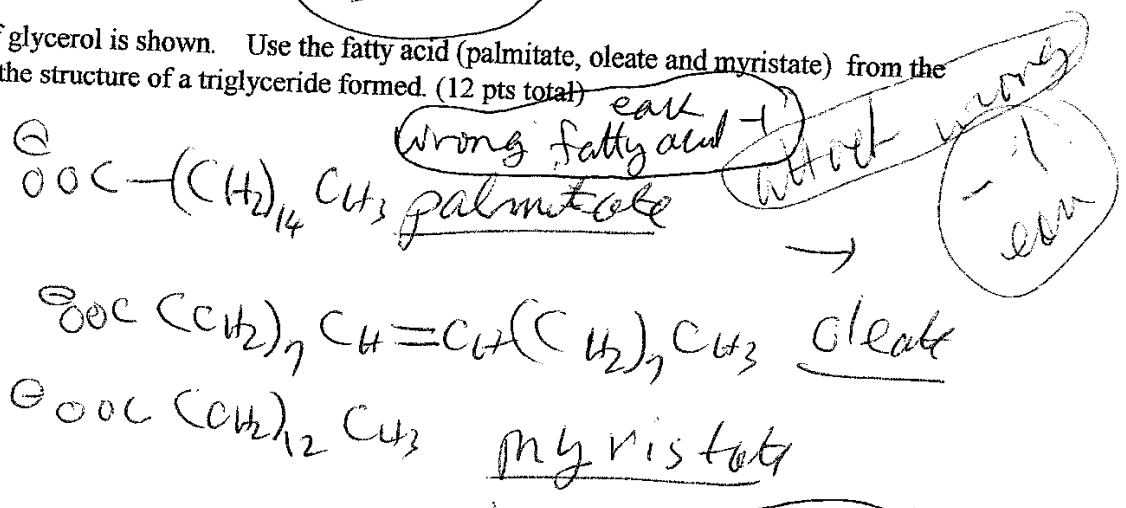 glycerol is shown. Use the fatty acid (palmitate, oleate and myristate) from the
the structure of a triglyceride formed. (12 pts total)
each
wrong fatty acid -1
wrong
-1
⊖OOC-(CH2)14 CH3 palmitate
→
⊖OOC (CH2)7 CH=CH(CH2)7 CH3 oleate
⊖OOC (CH2)12 CH3 myristate